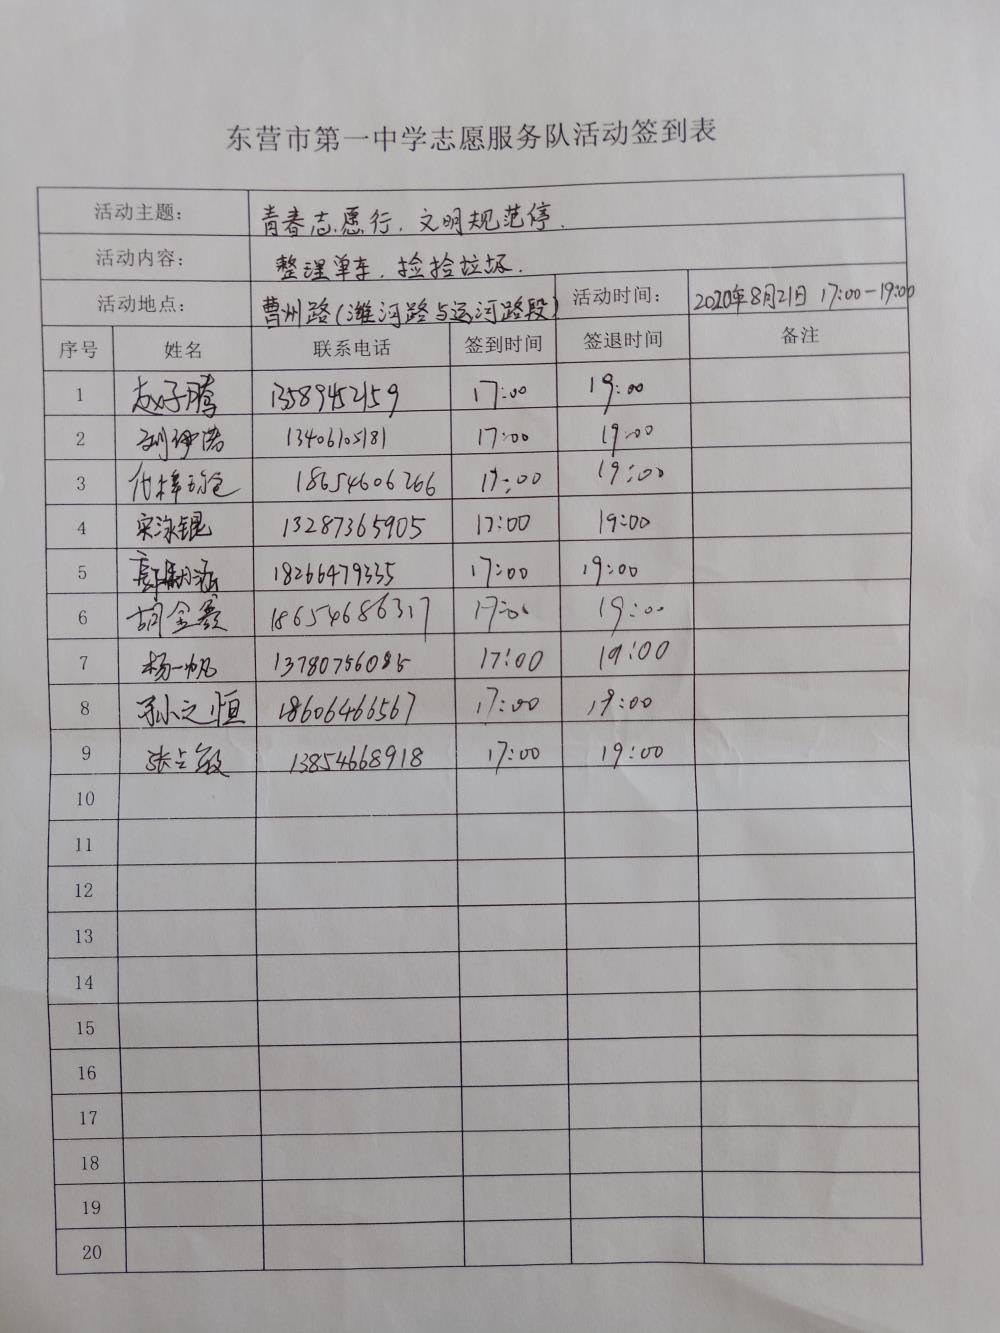 东营市第一中学志愿服务队活动签到表
活动主题： 青春志愿行，文明规范停.
活动内容： 整理单车，捡拾垃圾.
活动地点： 曹州路(潍河路与运河路段) 活动时间： 2020年8月21日 17:00-19:00
序号 姓名 联系电话 签到时间 签退时间 备注
1 赵子腾 13589452159 17:00 19:00
2 刘伊诺 13406105181 17:00 19:00
3 18654606266 17:00 19:00
4 宋泳锟 13287365905 17:00 19:00
5 18266479335 17:00 19:00
6 胡金 18654686317 17:00 19:00
7 杨一帆 13780756085 17:00 19:00
8 孙之恒 18606466567 17:00 19:00
9 张 13854668918 17:00 19:00
10
11
12
13
14
15
16
17
18
19
20